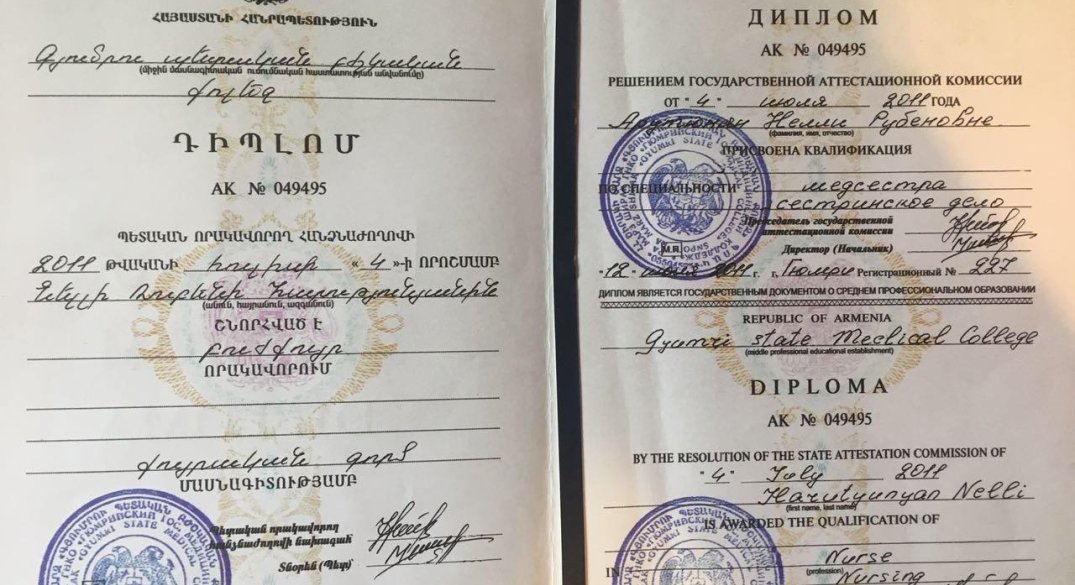 ՀԱՅԱՍՏԱՆԻ ՀԱՆՐԱՊԵՏՈՒԹՅՈՒՆ
Գյումրու պետական բժշկական
(միջին մասնագիտական ուսումնական հաստատության անվանումը)
քոլեջ
ԴԻՊԼՈՄ
АК № 049495
ՊԵՏԱԿԱՆ ՈՐԱԿԱՎՈՐՈՂ ՀԱՆՁՆԱԺՈՂՈՎԻ
2011 ԹՎԱԿԱՆԻ հուլիսի «4»-Ի ՈՐՈՇՄԱՄԲ
Նելլի Ռուբենի Հարությունյանին
(անուն, հայրանուն, ազգանուն)
ՇՆՈՐՀՎԱԾ Է
բուժքույր
ՈՐԱԿԱՎՈՐՈՒՄ
քույրական գործ
ՄԱՍՆԱԳԻՏՈՒԹՅԱՄԲ
Պետական որակավորող
հանձնաժողովի նախագահ
Տնօրեն (Պետ)
ДИПЛОМ
АК № 049495
РЕШЕНИЕМ ГОСУДАРСТВЕННОЙ АТТЕСТАЦИОННОЙ КОМИССИИ
ОТ "4" июля 2011 ГОДА
Арутюнян Нелли Рубеновне
(фамилия, имя, отчество)
ПРИСВОЕНА КВАЛИФИКАЦИЯ
ПО СПЕЦИАЛЬНОСТИ медсестра
сестринское дело
Председатель государственной
аттестационной комиссии
Директор (Начальник)
М.П.
"12" июля 2011 г. г. Гюмри Регистрационный № 227
ДИПЛОМ ЯВЛЯЕТСЯ ГОСУДАРСТВЕННЫМ ДОКУМЕНТОМ О СРЕДНЕМ ПРОФЕССИОНАЛЬНОМ ОБРАЗОВАНИИ
REPUBLIC OF ARMENIA
Gyumri state Medical College
(middle professional educational establishment)
DIPLOMA
АК № 049495
BY THE RESOLUTION OF THE STATE ATTESTATION COMMISSION OF
"4" July 2011
Harutyunyan Nelli
(first name, last name)
IS AWARDED THE QUALIFICATION OF
Nurse
(profession)
IN Nursing